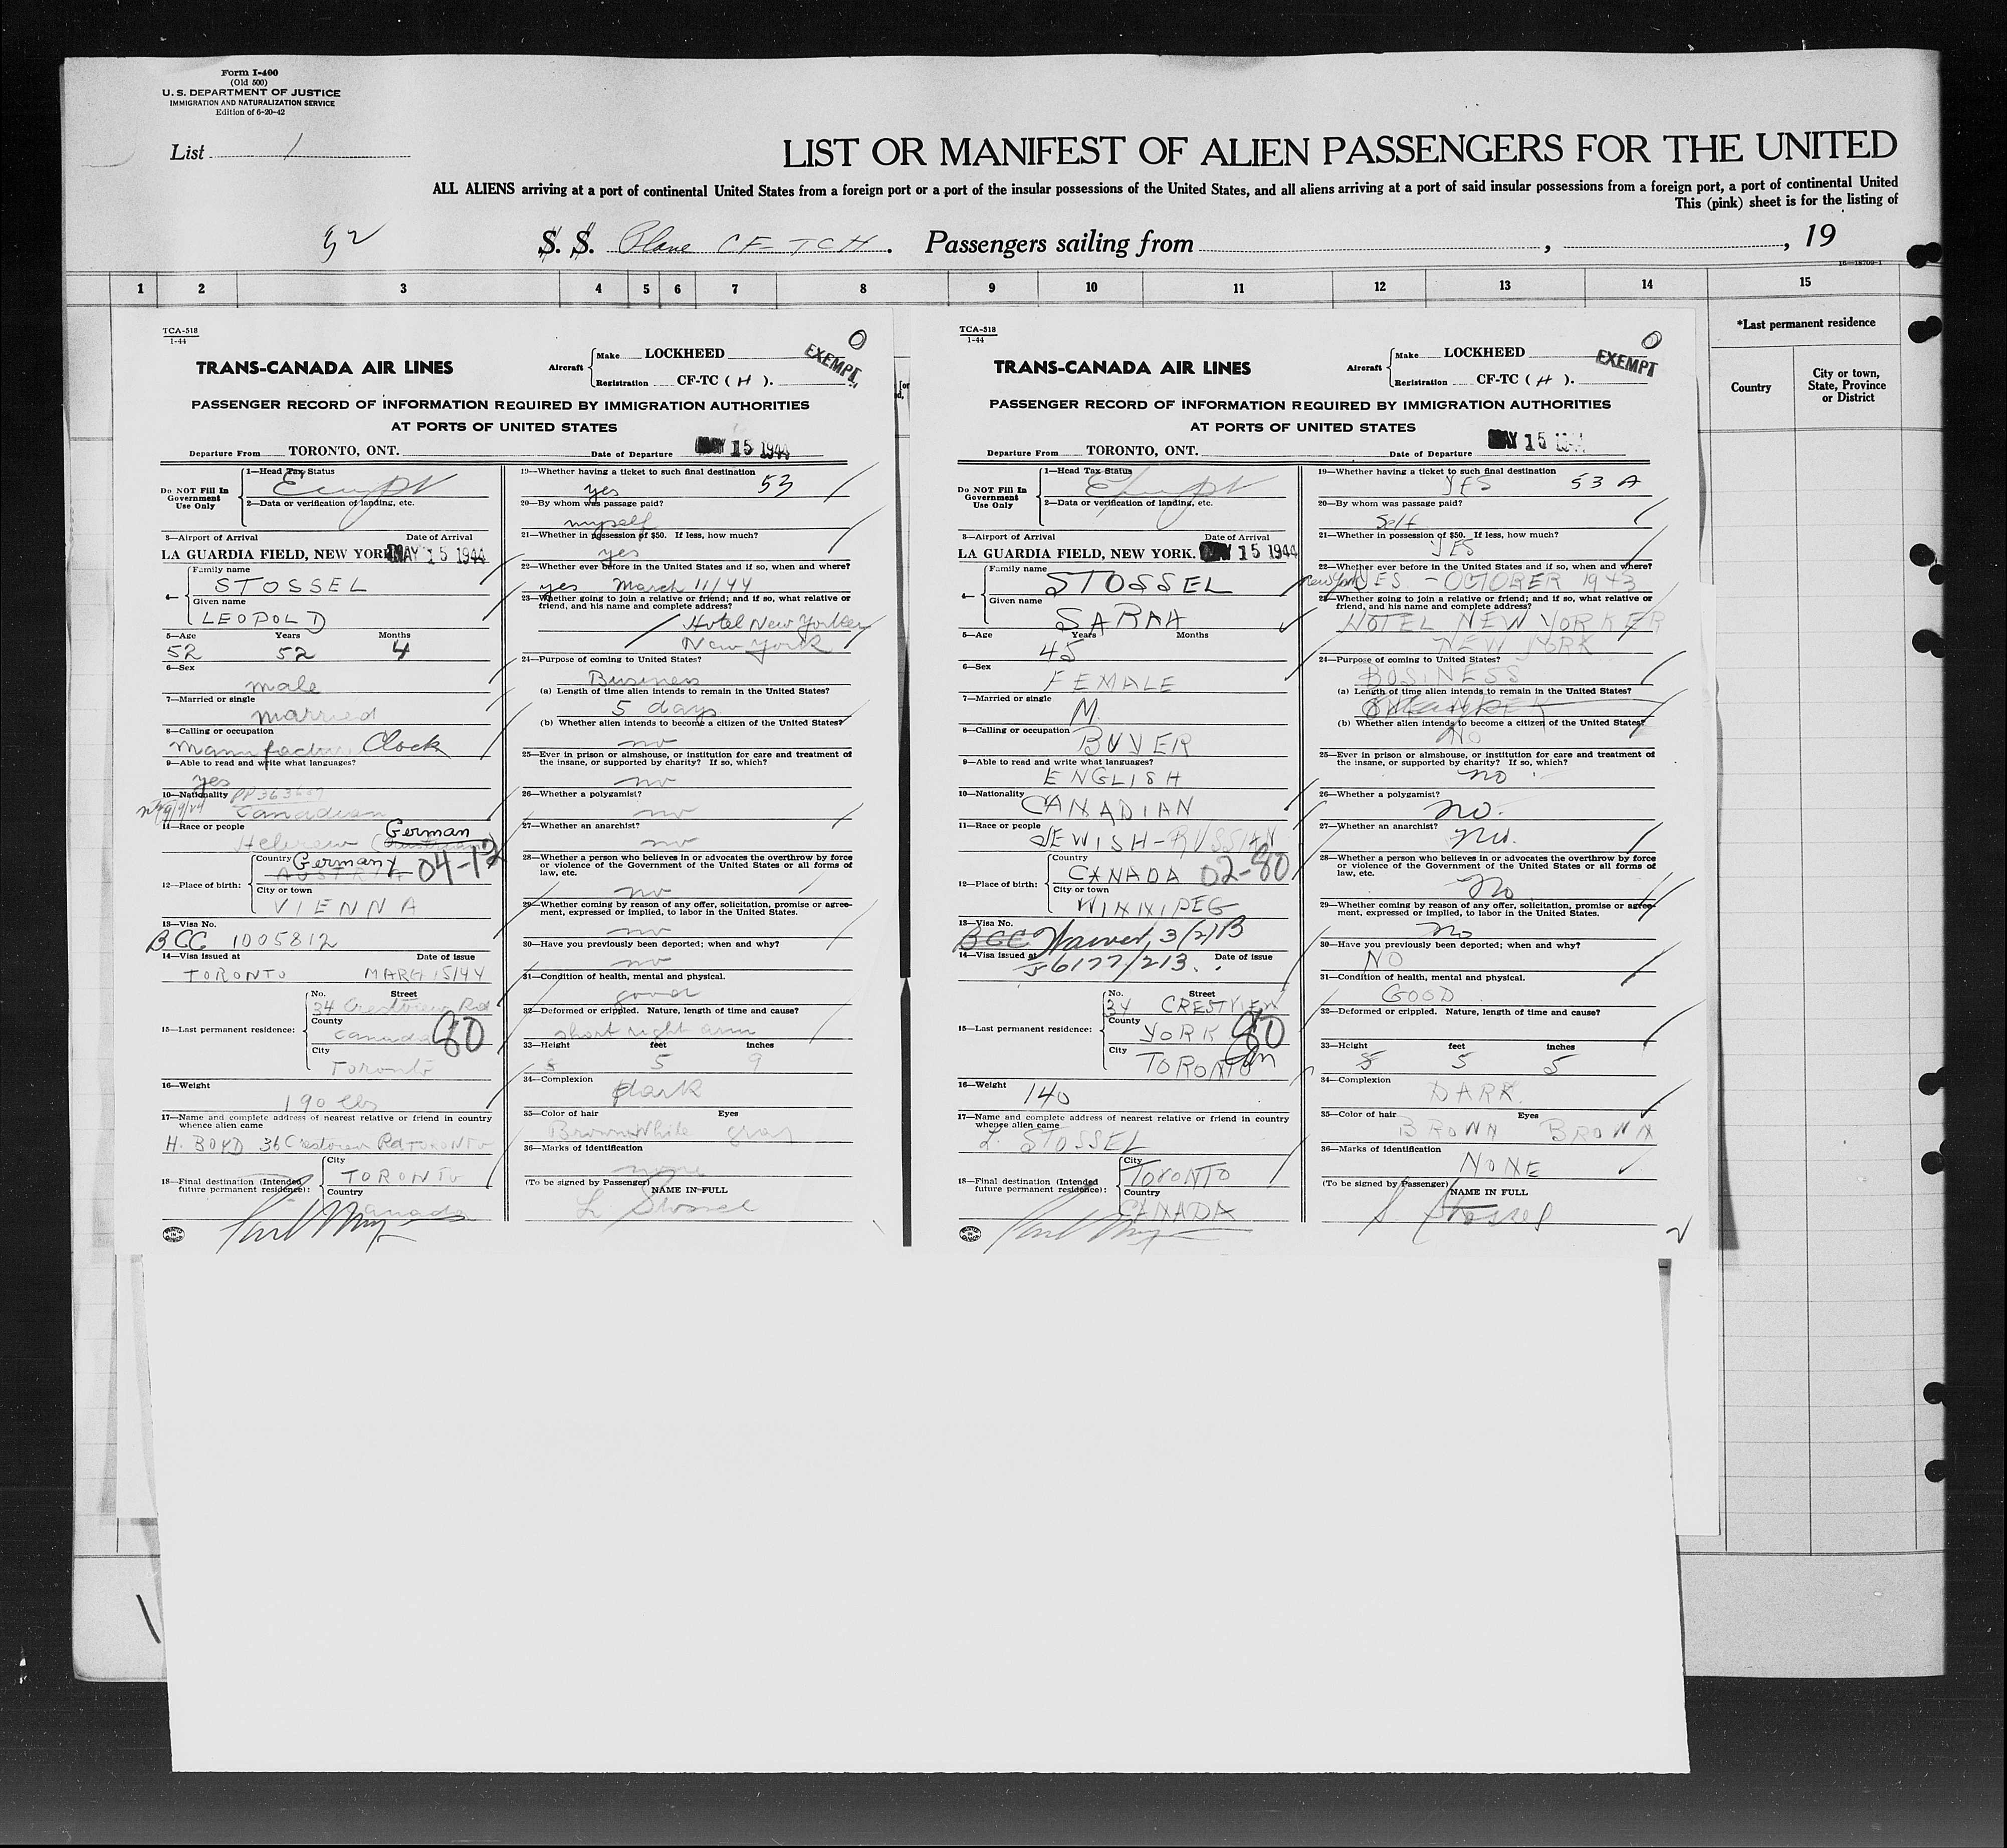 Form I-400
(Old 500)
U. S. DEPARTMENT OF JUSTICE
IMMIGRATION AND NATURALIZATION SERVICE
Edition of 6-20-42
List 1
LIST OR MANIFEST OF ALIEN PASSENGERS FOR THE UNITED
ALL ALIENS arriving at a port of continental United States from a foreign port or a port of the insular possessions of the United States, and all aliens arriving at a port of said insular possessions from a foreign port, a port of continental United
This (pink) sheet is for the listing of
52
S. S. Plane CF-TCH. Passengers sailing from , , 19
16—18709-1
1 2 3 4 5 6 7 8 9 10 11 12 13 14 15
*Last permanent residence
Country
City or town, State, Province or District
TCA-518
1-44
TRANS-CANADA AIR LINES
Aircraft Make LOCKHEED
Registration CF-TC ( H ).
O
EXEMPT
PASSENGER RECORD OF INFORMATION REQUIRED BY IMMIGRATION AUTHORITIES
AT PORTS OF UNITED STATES
Departure From TORONTO, ONT. Date of Departure MAY 15 1944
Do NOT Fill In Government Use Only
1—Head Tax Status
Exempt
2—Data or verification of landing, etc.
3—Airport of Arrival Date of Arrival
LA GUARDIA FIELD, NEW YORK MAY 15 1944
4—
Family name
STOSSEL
Given name
LEOPOLD
5—Age Years Months
52 52 4
6—Sex
male
7—Married or single
married
8—Calling or occupation
Manufacture Clock
9—Able to read and write what languages?
yes
10—Nationality
Canadian
11—Race or people German
Hebrew
12—Place of birth:
Country Germany 04-12
AUSTRIA
City or town
VIENNA
13—Visa No.
BCC 1005812
14—Visa issued at Date of issue
TORONTO MARCH 15/44
15—Last permanent residence:
No. Street
34 Crestview Rd
County
Canada 80
City
Toronto
16—Weight
190 lbs
17—Name and complete address of nearest relative or friend in country whence alien came
H. BOYD 36 Crestview Rd TORONTO
18—Final destination (Intended future permanent residence):
City
TORONTO
Country
Canada
19—Whether having a ticket to such final destination
yes 53
20—By whom was passage paid?
myself
21—Whether in possession of $50. If less, how much?
yes
22—Whether ever before in the United States and if so, when and where?
yes March 11/44
23—Whether going to join a relative or friend; and if so, what relative or friend, and his name and complete address?
Hotel New Yorker
New York
24—Purpose of coming to United States?
Business
(a) Length of time alien intends to remain in the United States?
5 days
(b) Whether alien intends to become a citizen of the United States?
no
25—Ever in prison or almshouse, or institution for care and treatment of the insane, or supported by charity? If so, which?
no
26—Whether a polygamist?
no
27—Whether an anarchist?
no
28—Whether a person who believes in or advocates the overthrow by force or violence of the Government of the United States or all forms of law, etc.
no
29—Whether coming by reason of any offer, solicitation, promise or agreement, expressed or implied, to labor in the United States.
no
30—Have you previously been deported; when and why?
no
31—Condition of health, mental and physical.
good
32—Deformed or crippled. Nature, length of time and cause?
short right arm
33—Height feet inches
5 5 9
34—Complexion
dark
35—Color of hair Eyes
Brown White gray
36—Marks of identification
none
(To be signed by Passenger) NAME IN FULL
L Stossel
TCA-518
1-44
TRANS-CANADA AIR LINES
Aircraft Make LOCKHEED
Registration CF-TC ( H ).
O
EXEMPT
PASSENGER RECORD OF INFORMATION REQUIRED BY IMMIGRATION AUTHORITIES
AT PORTS OF UNITED STATES
Departure From TORONTO, ONT. Date of Departure MAY 15
Do NOT Fill In Government Use Only
1—Head Tax Status
Exempt
2—Data or verification of landing, etc.
3—Airport of Arrival Date of Arrival
LA GUARDIA FIELD, NEW YORK. MAY 15 1944
4—
Family name
STOSSEL
Given name
SARAH
5—Age Years Months
45
6—Sex
FEMALE
7—Married or single
M
8—Calling or occupation
BUYER
9—Able to read and write what languages?
ENGLISH
10—Nationality
CANADIAN
11—Race or people
JEWISH-RUSSIAN
12—Place of birth:
Country
CANADA 02-80
City or town
WINNIPEG
13—Visa No.
BCC Waiver, 3/2/B
14—Visa issued at Date of issue
56177/213.
15—Last permanent residence:
No. Street
34 CRESTVIEW
County
YORK 80
City
TORONTO
16—Weight
140
17—Name and complete address of nearest relative or friend in country whence alien came
L. STOSSEL
18—Final destination (Intended future permanent residence):
City
TORONTO
Country
CANADA
19—Whether having a ticket to such final destination
YES 53 A
20—By whom was passage paid?
Self
21—Whether in possession of $50. If less, how much?
YES
22—Whether ever before in the United States and if so, when and where?
New York YES - OCTOBER 1943
23—Whether going to join a relative or friend; and if so, what relative or friend, and his name and complete address?
HOTEL NEW YORKER
NEW YORK
24—Purpose of coming to United States?
BUSINESS
(a) Length of time alien intends to remain in the United States?
(b) Whether alien intends to become a citizen of the United States?
NO
25—Ever in prison or almshouse, or institution for care and treatment of the insane, or supported by charity? If so, which?
no
26—Whether a polygamist?
no.
27—Whether an anarchist?
no.
28—Whether a person who believes in or advocates the overthrow by force or violence of the Government of the United States or all forms of law, etc.
no
29—Whether coming by reason of any offer, solicitation, promise or agreement, expressed or implied, to labor in the United States.
no
30—Have you previously been deported; when and why?
NO
31—Condition of health, mental and physical.
GOOD
32—Deformed or crippled. Nature, length of time and cause?
33—Height feet inches
5 5 5
34—Complexion
DARK.
35—Color of hair Eyes
BROWN BROWN
36—Marks of identification
NONE
(To be signed by Passenger) NAME IN FULL
S Stossel